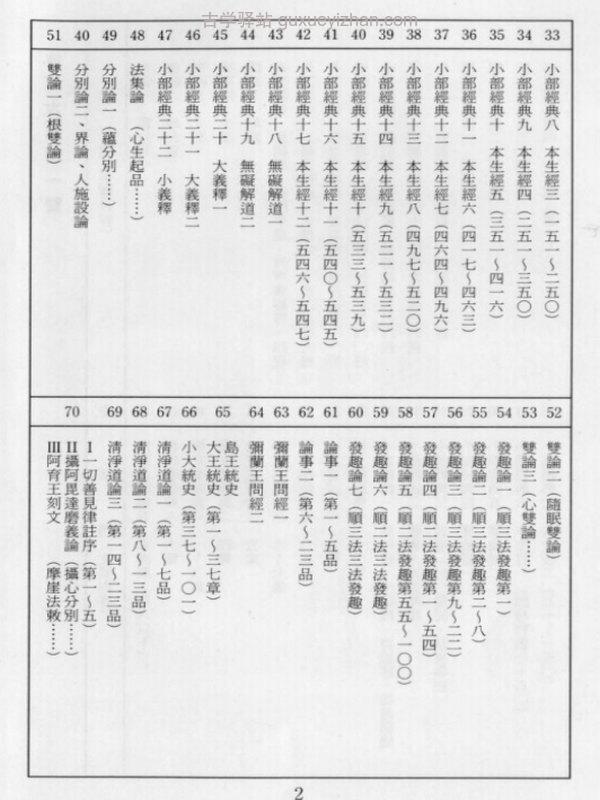 古学驿站 guxueyizhan.com
33 小部經典八 本生經三（一五一～二五〇）
34 小部經典九 本生經四（二五一～三五〇）
35 小部經典十 本生經五（三五一～四一六）
36 小部經典十一 本生經六（四一七～四六三）
37 小部經典十二 本生經七（四六四～四九六）
38 小部經典十三 本生經八（四九七～五二〇）
39 小部經典十四 本生經九（五二一～五三二）
40 小部經典十五 本生經十（五三三～五三九）
41 小部經典十六 本生經十一（五四〇～五四五）
42 小部經典十七 本生經十二（五四六～五四七）
43 小部經典十八 無礙解道一
44 小部經典十九 無礙解道二
45 小部經典二十 大義釋一
46 小部經典二十一 大義釋二
47 小部經典二十二 小義釋
48 法集論 （心生起品……）
49 分別論一（蘊分別……）
40 分別論二、界論、人施設論
51 雙論一（根雙論）
52 雙論二（隨眠雙論）
53 雙論三（心雙論……）
54 發趣論一（順三法發趣第一）
55 發趣論二（順三法發趣第二～八）
56 發趣論三（順三法發趣第九～二二）
57 發趣論四（順二法發趣第一～五四）
58 發趣論五（順二法發趣第五五～一〇〇）
59 發趣論六（順二法三法發趣）
60 發趣論七（順三法三法發趣）
61 論事一（第一～五品）
62 論事二（第六～二三品）
63 彌蘭王問經一
64 彌蘭王問經二
65 島王統史
大王統史（第一～三七章）
66 小大統史（第三七～一〇一）
67 清淨道論一（第一～七品）
68 清淨道論二（第八～一三品）
69 清淨道論三（第一四～二三品）
70 Ⅰ一切善見律註序（第一～五）
Ⅱ攝阿毘達磨義論（攝心分別……）
Ⅲ阿育王刻文 （摩崖法敕……）
2